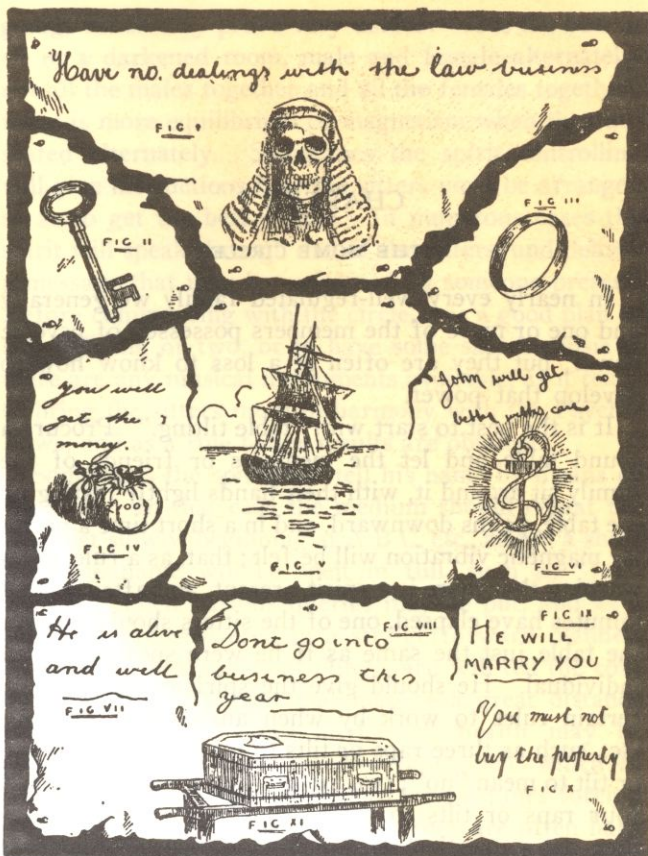 Have no. dealings with the law business
FIG I
FIG II
FIG III
You will
get the
money.
FIG IV
FIG V
John will get
better with care
FIG VI
He is alive
and well
FIG VII
Dont go into
business this
year
FIG VIII
HE WILL
MARRY YOU
FIG IX
You must not
buy the property
FIG X
FIG XI